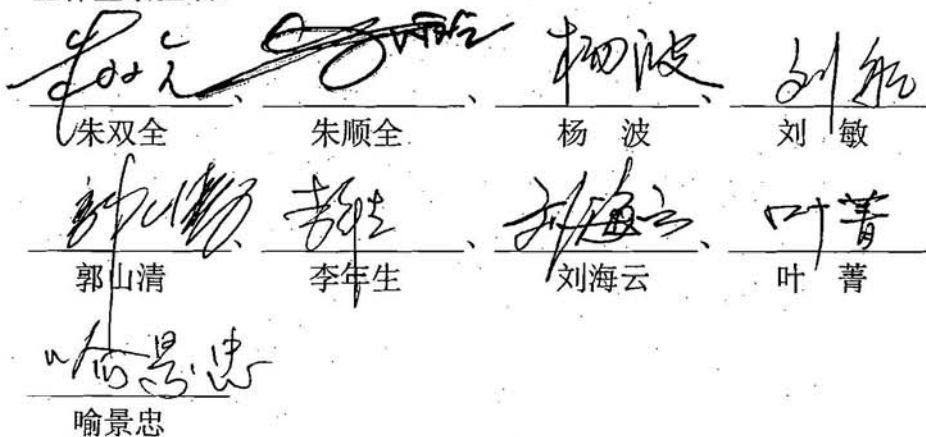 朱双全、 朱顺全、 杨波、 刘敏
朱双全 朱顺全 杨 波 刘 敏
郭山清、 李年生、 刘海云、 叶菁
郭山清 李年生 刘海云 叶 菁
喻景忠
喻景忠